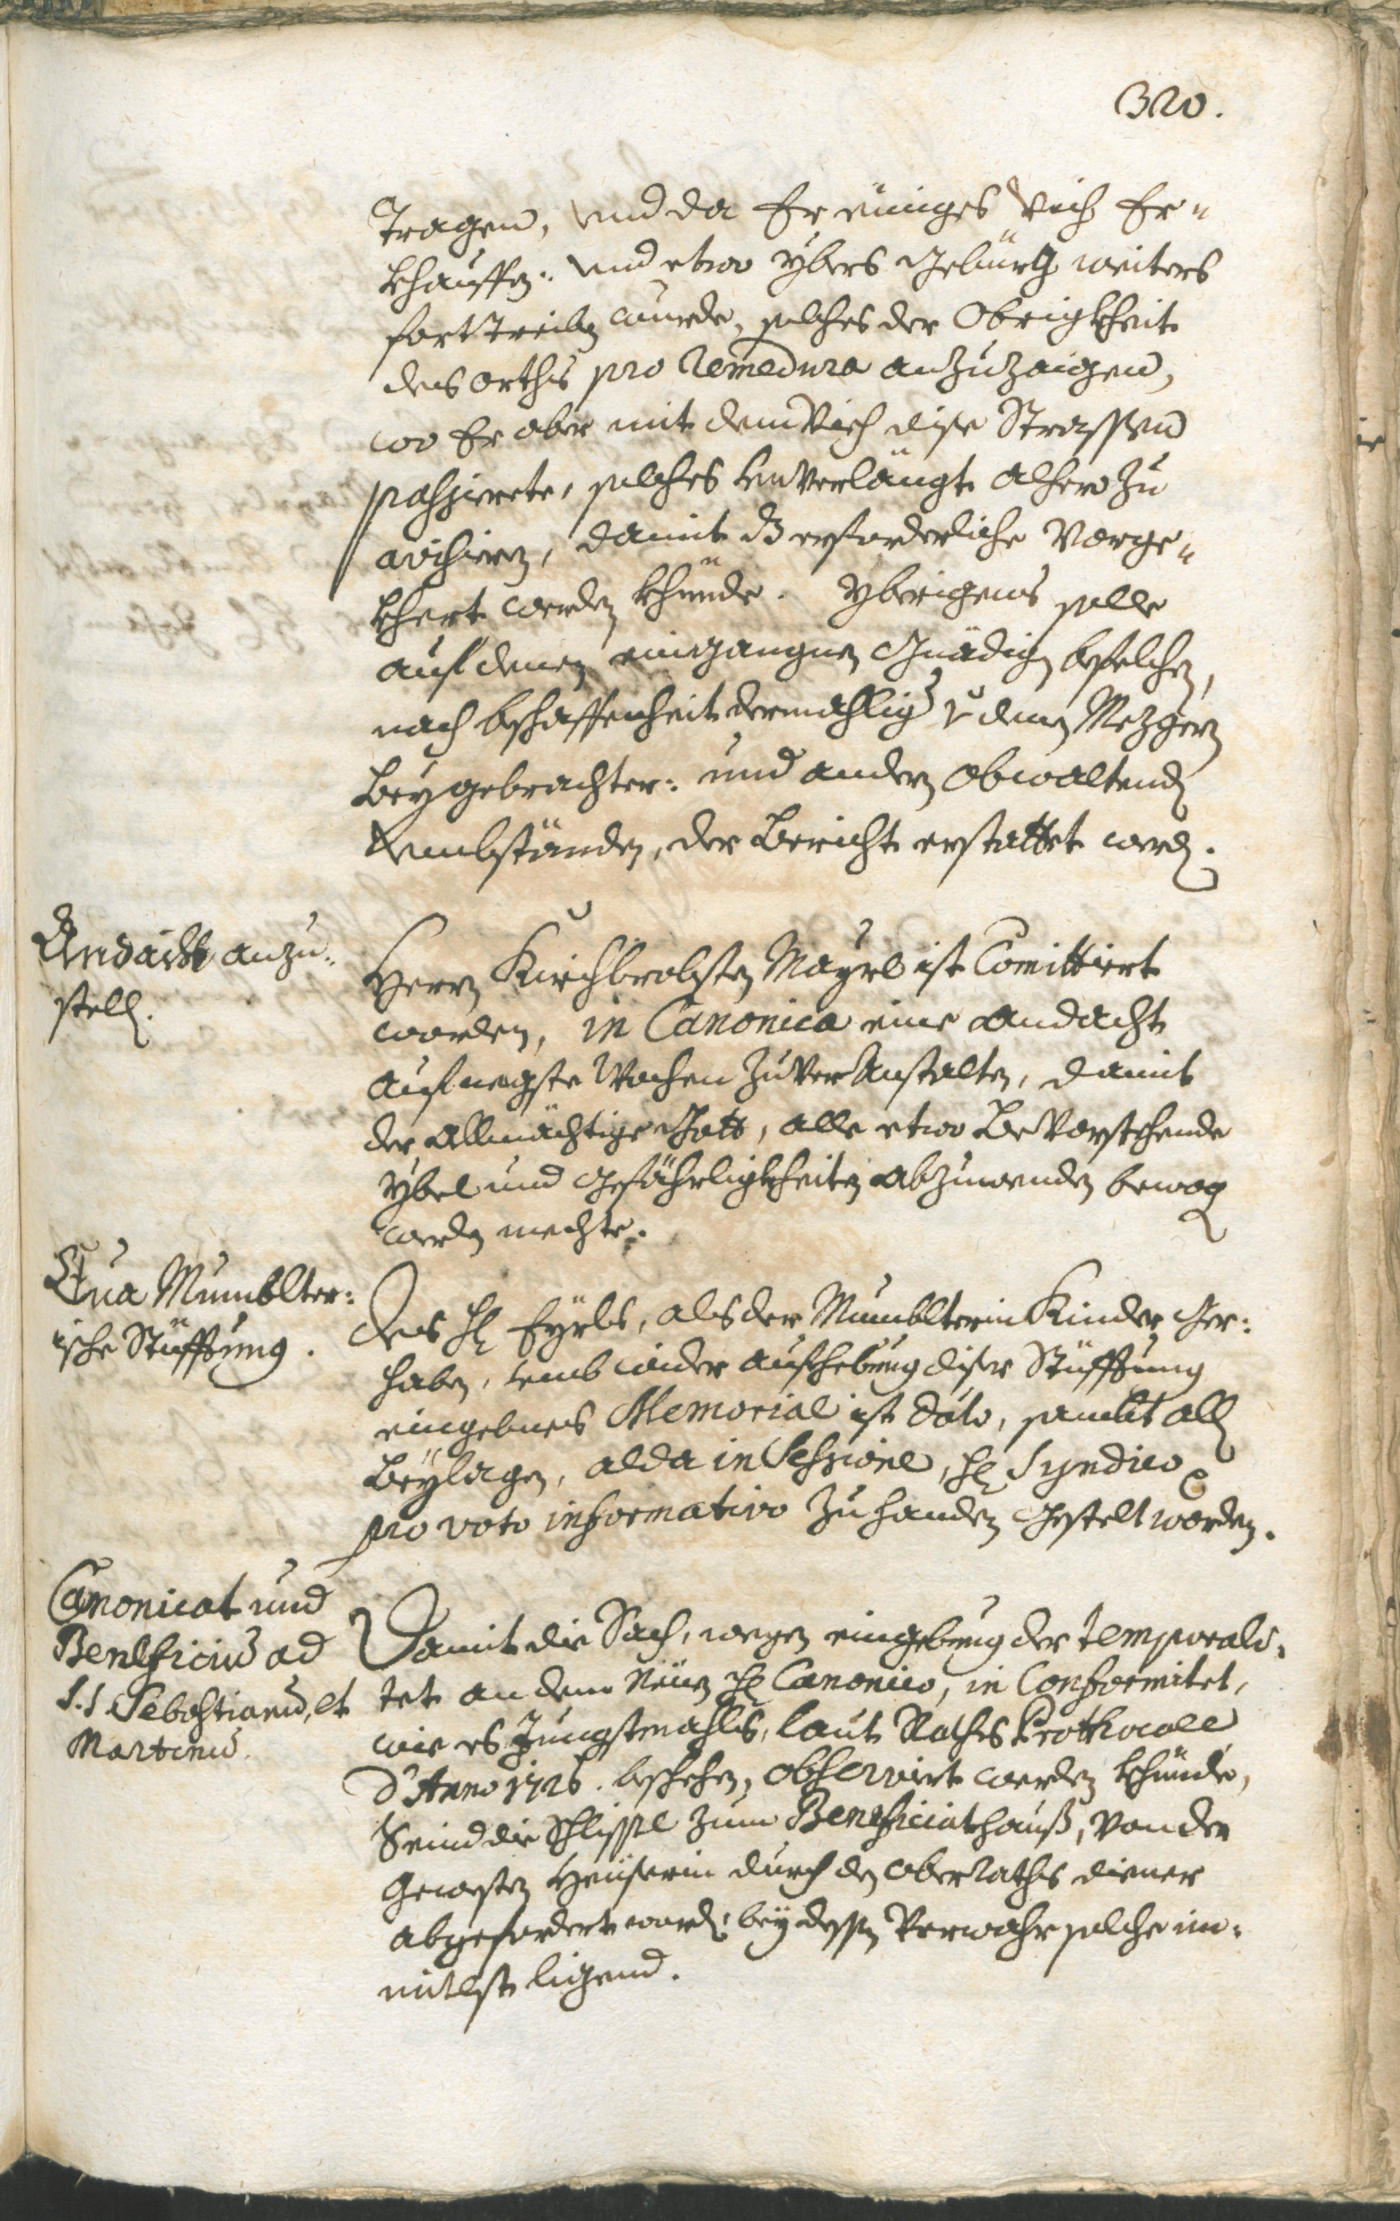 320.
tragen, und da Er einiges Vich Er=
khauffen: und etwo ybers Gebürg weiters
fort treiben wurde, solches der Obrigkheit
des orths pro remedura anzuzaigen,
wo Er aber mit dem Vich dise Strassen
passierete, solches unverlängt alhero zu
avisieren, damit dz erforderliche Vorge=
khert werden khünde. Yberigens solle
auf denen eingangnen Gnädigen befelchen,
nach beschaffenheit dermahlig v denen Mezgern
beygebrachter: und andern obwaltenden
umbständen, der Bericht erstattet werden.
Andacht anzu=
stellen.
Herrn Kirchbrobsten Mayrl ist Comittiert
worden, in Canonica eine andacht
auf negste Wochen zu veranstalten, damit
der allmächtige Gott, alle etwo bevorstehende
ybel und gefährligkheiten abzuwenden bewogen
werden mechte.
Eva Mumblter=
ische Stüfftung.
Des H: Eyrls, als der Mumblterin Kinder Ger=
haben, umb wider aufhebung diser Stüfftung
eingebnes Memorial ist dato, sambt allen
beylagen, alda in Sessione, H: Syndico
pro voto informativo zuhanden gestelt worden.
Canonicat und
Beneficium ad
S.S. Sebastianum, et
Martinum.
Damit die Sach, wegen eingebung der temporali=
tet an dem Neuen H: Canonico, in Conformitet,
wie es Jungstmahls, laut Raths Prothocoll
d'Anno 1726. beschehen, observirt werden khünde,
Seind die Schlissl zum Beneficiathauß, von der
gewesten Heuserin durch den ober Raths diener
abgefordert worden, bey dessen Verwahr solche im=
mitlst ligend.